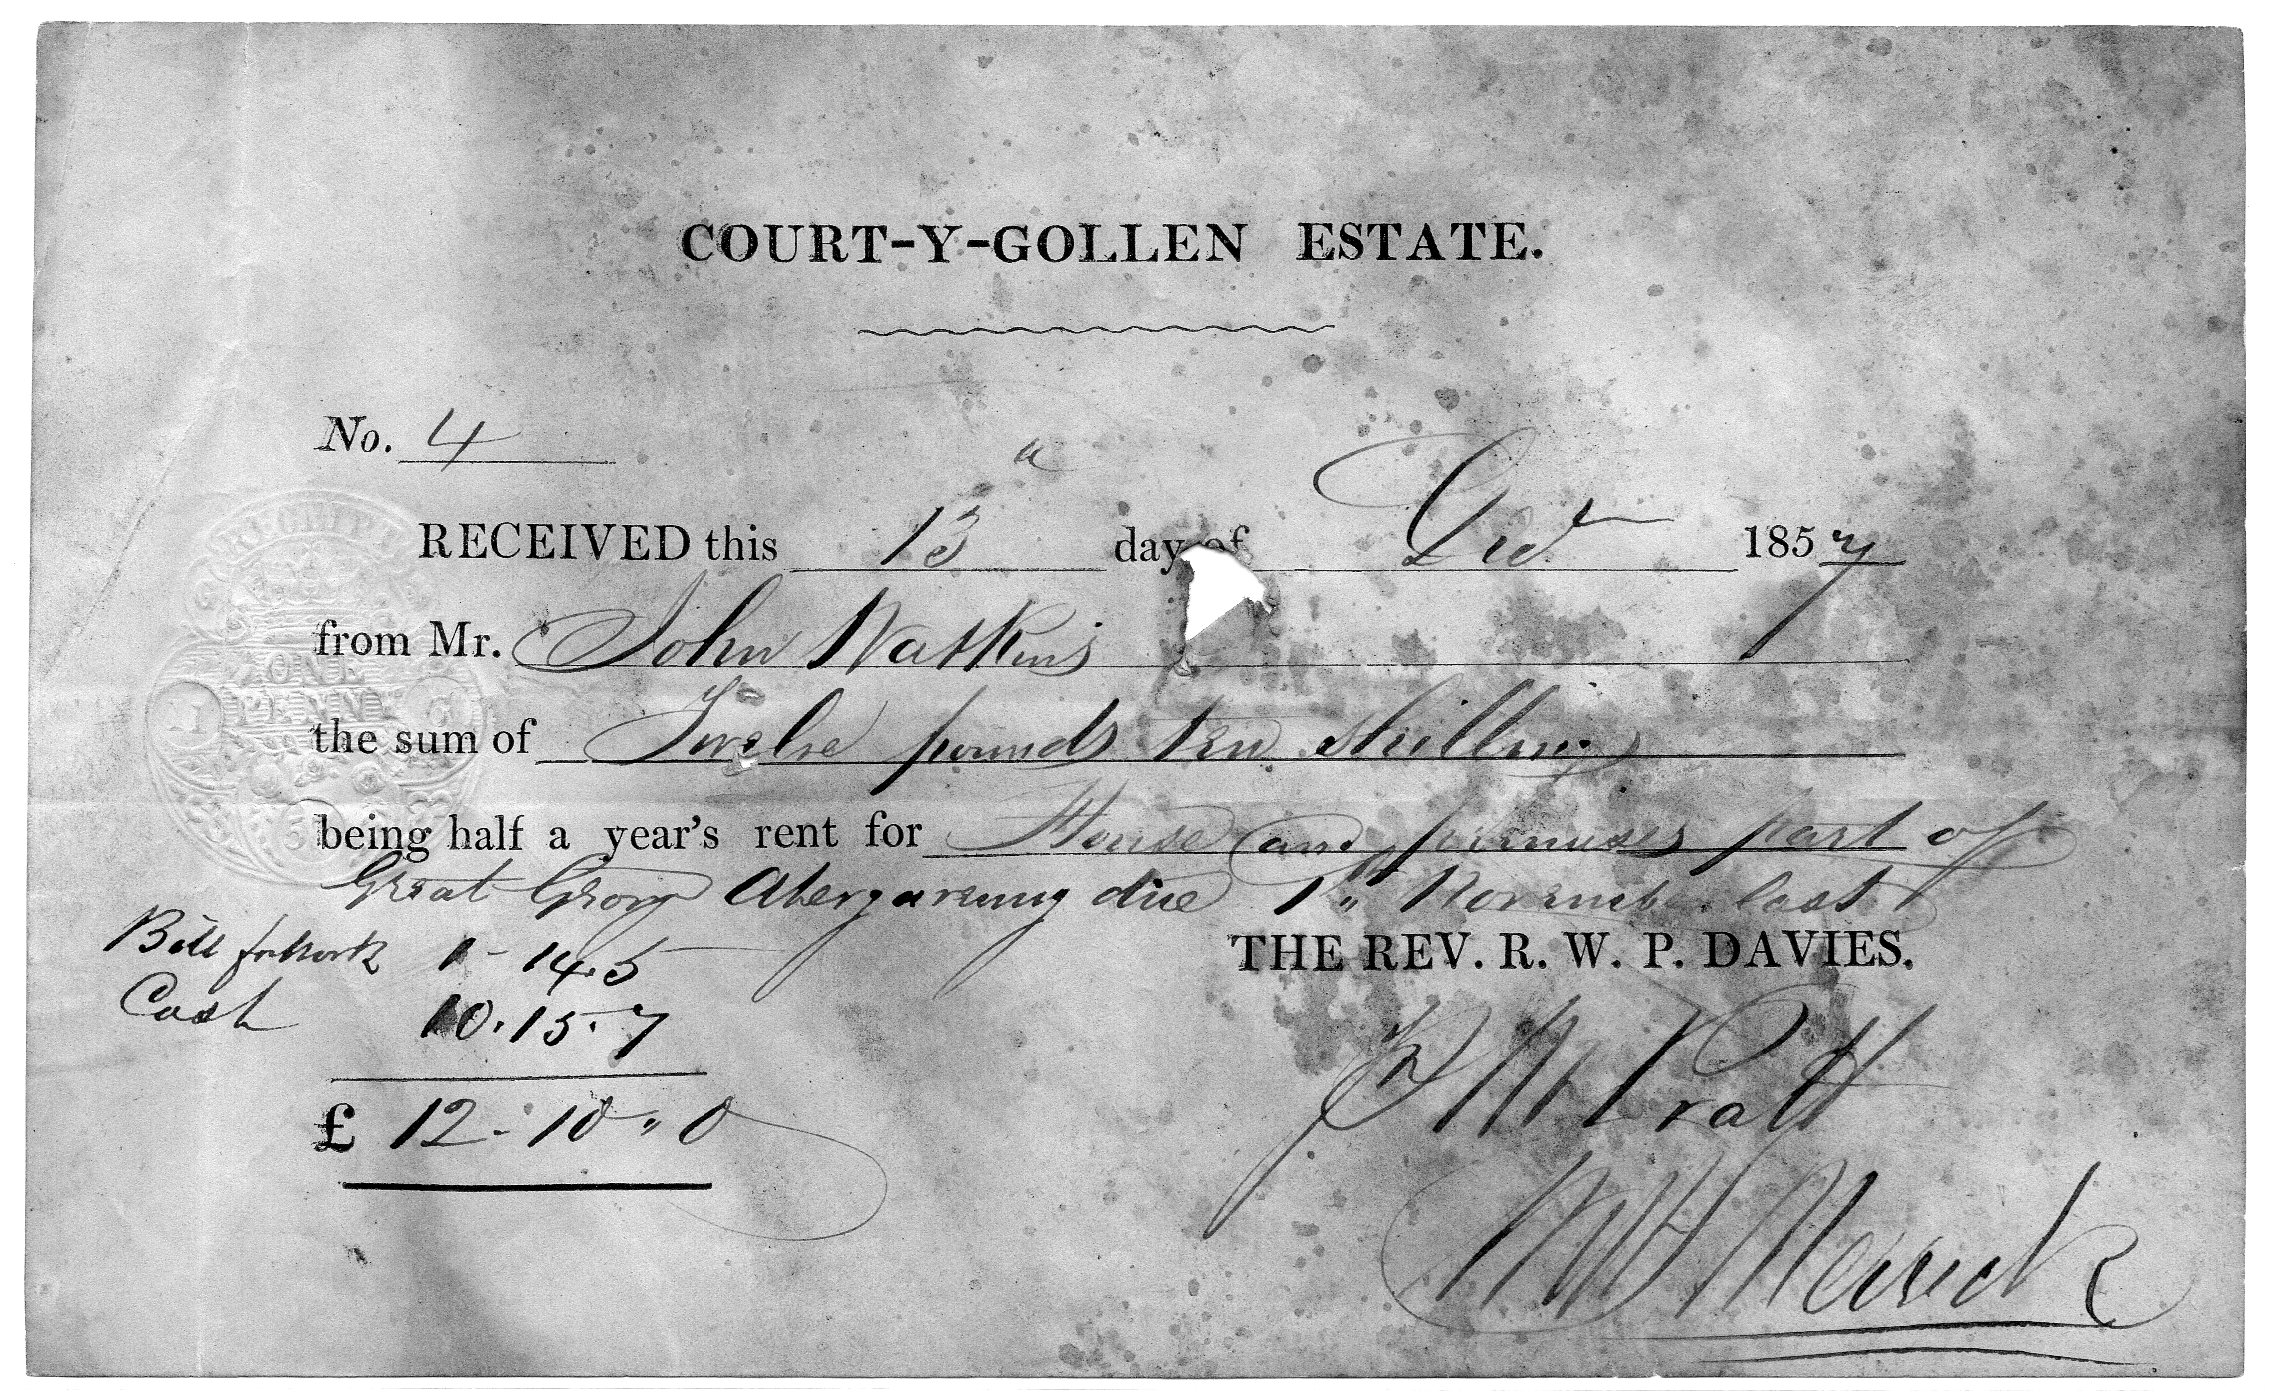 COURT-Y-GOLLEN ESTATE.
No. 4
RECEIVED this 13 day of Decr 1857
from Mr. John Watkins
the sum of Twelve pounds ten shillings
being half a year's rent for House and premises part of
Great George Abergavenny due 1st November last
THE REV. R. W. P. DAVIES.
Bill for Work 1-14.5
Cash 10.15.7
£ 12-10"0
Pratt
W H Merrick
RECEIPT
ONE
PENNY